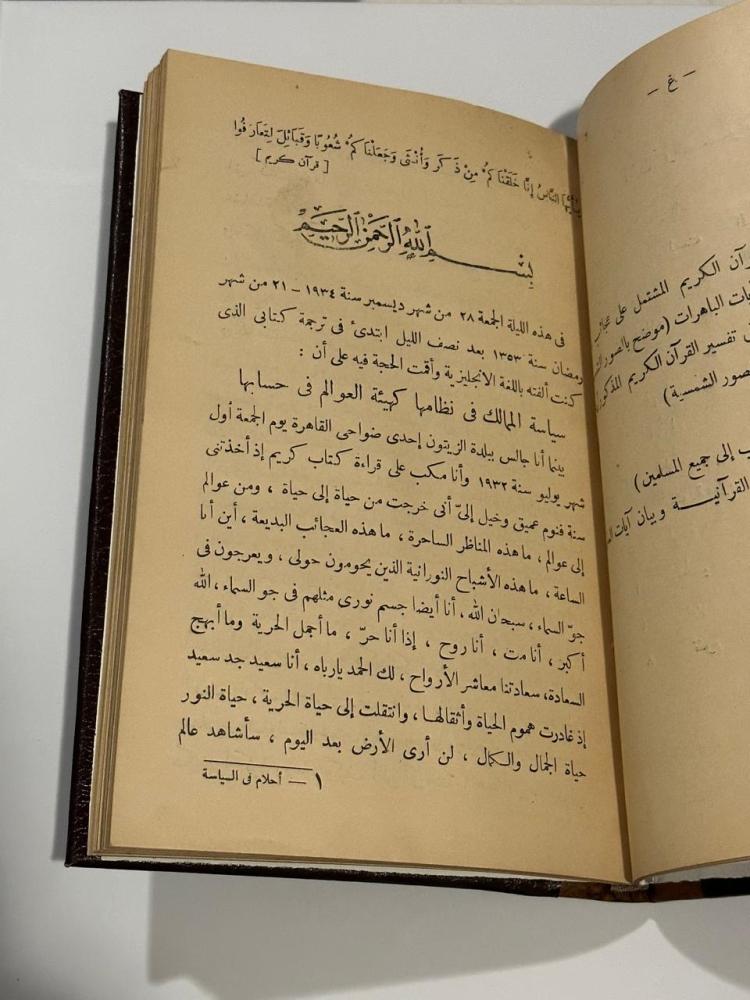 النَّاسُ إِنَّا خَلَقْنَاكُمْ مِنْ ذَكَرٍ وَأُنْثَى وَجَعَلْنَاكُمْ شُعُوبًا وَقَبَائِلَ لِتَعَارَفُوا
[قرآن كريم]
بِسْمِ اللهِ الرَّحْمٰنِ الرَّحِيمِ
فى هذه الليلة الجمعة ٢٨ من شهر ديسمبر سنة ١٩٣٤ – ٢١ من شهر
رمضان سنة ١٣٥٣ بعد نصف الليل ابتدئ فى ترجمة كتابى الذى
كنت ألفته باللغة الانجليزية وأقت الحجة فيه على أن :
سياسة الممالك فى نظامها كهيئة العوالم فى حسابها
بينما أنا جالس ببلدة الزيتون إحدى ضواحى القاهرة يوم الجمعة أول
شهر يوليو سنة ١٩٣٢ وأنا مكب على قراءة كتاب كريم إذ أخذتنى
سنة فنوم عميق وخيل إلىّ أنى خرجت من حياة إلى حياة ، ومن عوالم
إلى عوالم ، ما هذه المناظر الساحرة ، ما هذه العجائب البديعة ، أين أنا
الساعة ، ما هذه الأشباح النورانية الذين يحومون حولى ، ويعرجون فى
جوّ السماء ، سبحان الله ، أنا أيضا جسم نورى مثلهم فى جو السماء ، الله
أكبر ، أنا مت ، أنا روح ، إذا أنا حرّ ، ما أجمل الحرية وما أبهج
السعادة، سعادتنا معاشر الأرواح ، لك الحمد يارباه ، أنا سعيد جد سعيد
إذ غادرت هموم الحياة وأثقالها ، وانتقلت إلى حياة الحرية ، حياة النور
حياة الجمال والكمال ، لن أرى الأرض بعد اليوم ، سأشاهد عالم
١ — أحلام فى السياسة
– غ –
القرآن الكريم المشتمل على عجائب
الباهرات (موضح بالصور
تفسير القرآن الكريم المذكور
الشمسية)
إلى جميع المسلمين)
القرآنيـة وبيان آيات